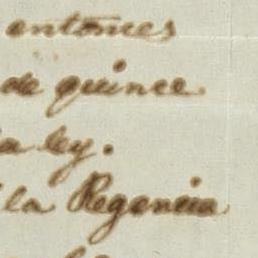 entonces
de quince
ley.
la Regencia